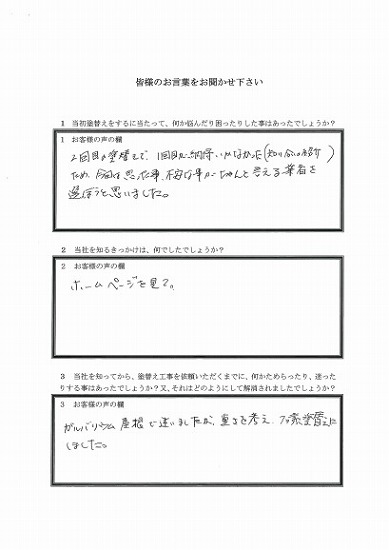 皆様のお言葉をお聞かせ下さい
1 当初塗替えをするに当たって、何か悩んだり困ったりした事はあったでしょうか?
1 お客様の声の欄
2回目の塗替えで、1回目が納得いかなかった(知り合いの紹介)
ため、今回は思った事、が ちゃんと言える業者を
選ぼうと思いました。
2 当社を知るきっかけは、何でしたでしょうか?
2 お客様の声の欄
ホームページを見て。
3 当社を知ってから、塗替え工事を依頼いただくまでに、何かためらったり、迷った
りする事はあったでしょうか?又、それはどのようにして解消されましたでしょうか?
3 お客様の声の欄
ガルバリウム屋根で迷いましたが、重さを考え、フッ素塗替えに
しました。